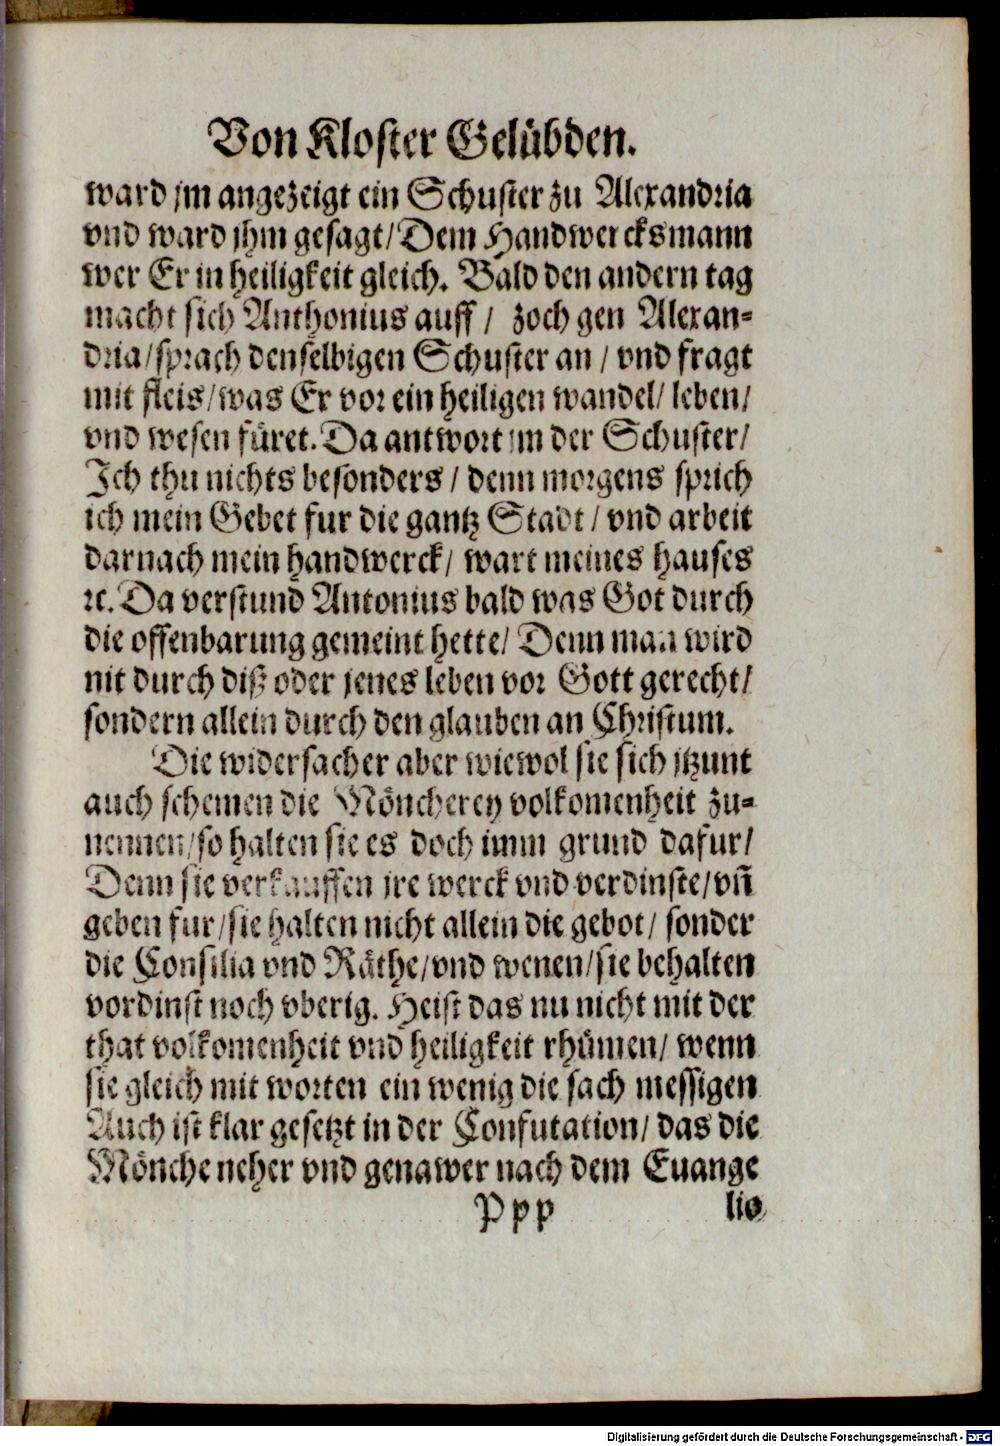 Von Kloster Gelübden.
ward jm angezeigt ein Schuster zu Alexandria
vnd ward jhm gesagt/ Dem Handwercksmann
wer Er in heiligkeit gleich. Bald den andern tag
macht sich Anthonius auff / zoch gen Alexan-
dria/ sprach denselbigen Schuster an / vnd fragt
mit fleis/ was Er vor ein heiligen wandel/ leben/
vnd wesen füret. Da antwort jm der Schuster/
Ich thu nichts besonders / denn morgens sprich
ich mein Gebet fur die gantz Stadt / vnd arbeit
darnach mein handwerck/ wart meines hauses
ꝛc. Da verstund Antonius bald was Got durch
die offenbarung gemeint hette/ Denn man wird
nit durch diß oder jenes leben vor Gott gerecht/
sondern allein durch den glauben an Christum.
Die widersacher aber wiewol sie sich jtzunt
auch schemen die Möncherey volkomenheit zu-
nennen/ so halten sie es doch imm grund dafur/
Denn sie verkauffen jre werck vnd verdinste/ vn̄
geben fur/ sie halten nicht allein die gebot/ sonder
die Consilia vnd Räthe/ vnd wenen/ sie behalten
vordinst noch vberig. Heist das nu nicht mit der
that volkomenheit vnd heiligkeit rhümen/ wenn
sie gleich mit worten ein wenig die sach messigen
Auch ist klar gesetzt in der Confutation/ das die
Mönche neher vnd genawer nach dem Euange
Ppp lio
Digitalisierung gefördert durch die Deutsche Forschungsgemeinschaft - DFG